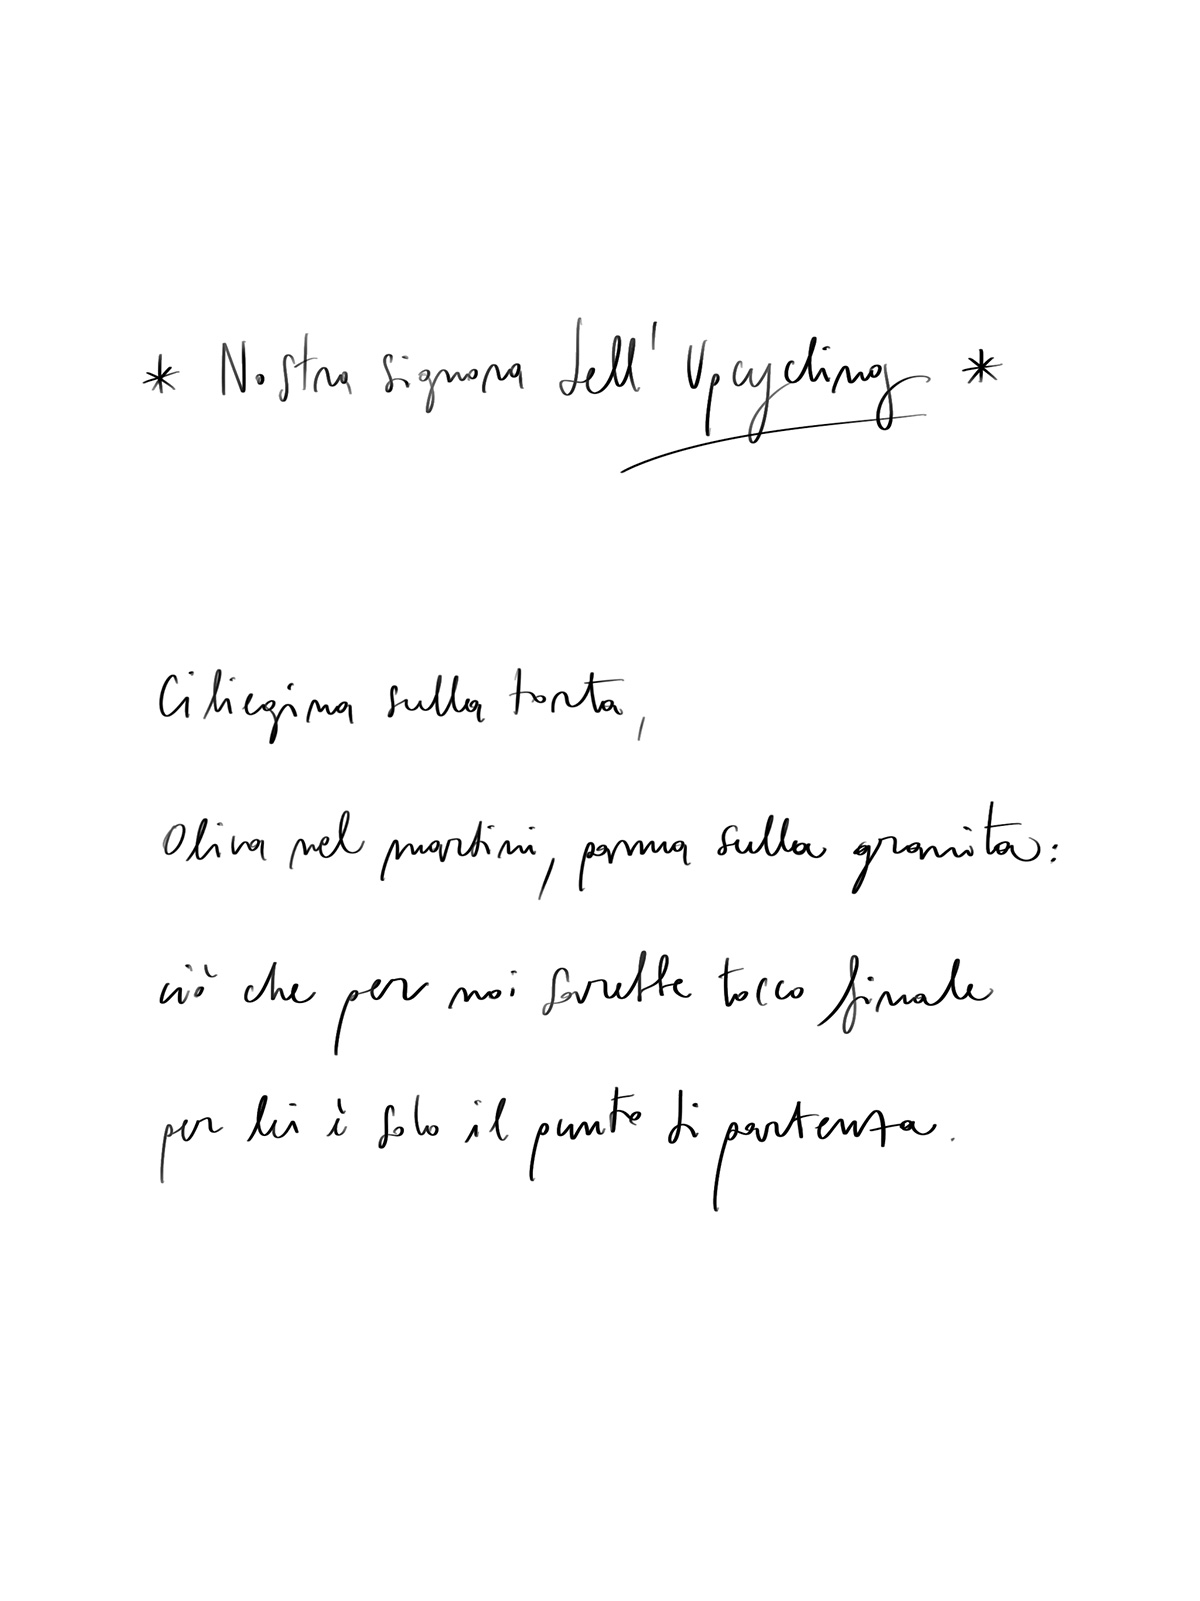 * Nostra signora dell' Upcycling *
Ciliegina sulla torta,
Oliva nel martini, panna sulla granita:
ciò che per noi sarebbe tocco finale
per lei è solo il punto di partenza.